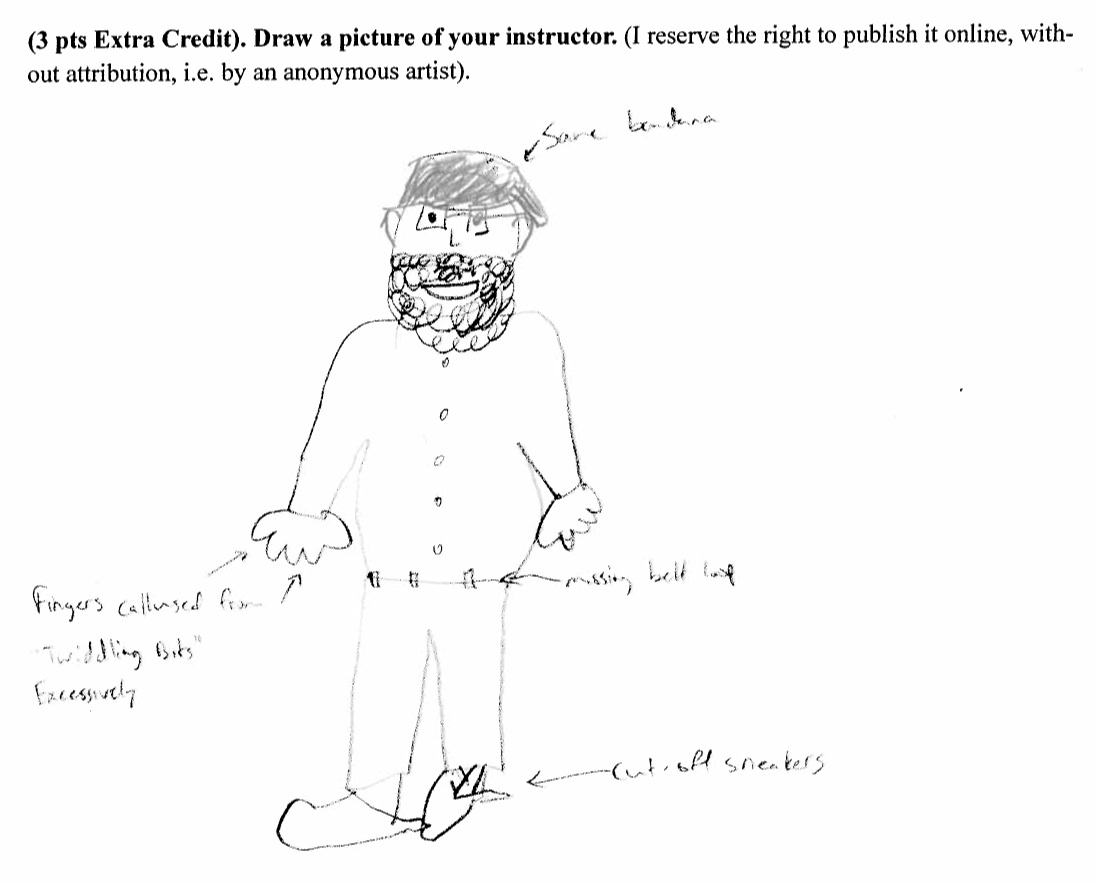 (3 pts Extra Credit). Draw a picture of your instructor. (I reserve the right to publish it online, with-
out attribution, i.e. by an anonymous artist).
Same bandana
missing belt loop
Fingers callused from
"Twiddling Bits"
Excessively
cut-off sneakers